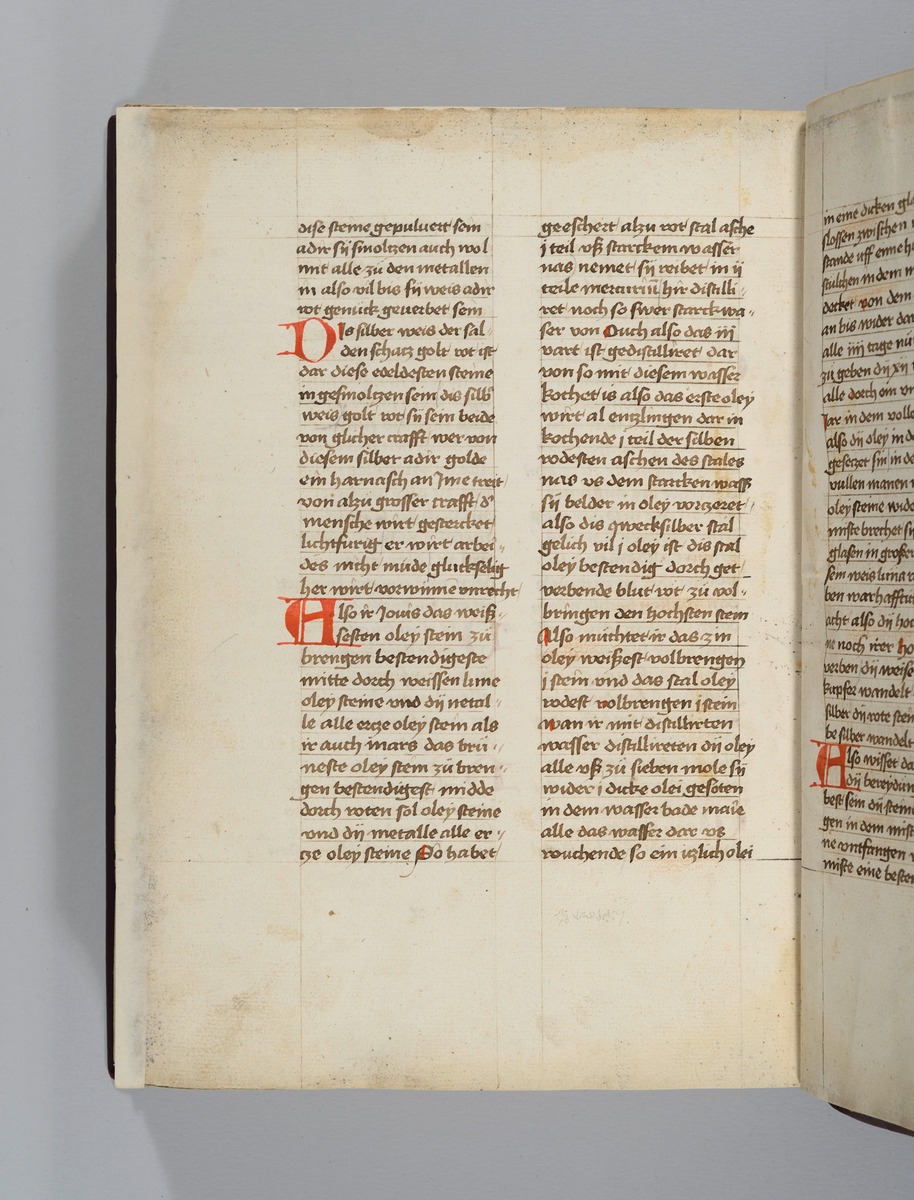 dise steine gepuluert sein
adir sÿ smoltzen auch wol
mit alle zu den metallen
in also vil bis sÿ weis adir
rot genuck geuerbet sein
Dis silber weis der sal
den schatz golt rot ist
dar diese edeldesten steine
in gesmoltzen sein dis silb
weis golt rot sÿ sein beide
von glicher crafft wer von
diesem silber adir golde
ein harnasch an Ime treit
von alzu grosser crafft d
mensche wirt gestercket
lichtfurig er wirt arbei
des nicht mude gluckselig
her wirt vorwinnen vnrecht
Also ir Jouis das weiß
sesten oley stein zu
brengen bestendigeste
mitte dorch weissen lune
oley steine vnd dÿ metal
le alle ercze oley stein als
ir auch mars das bru
neste oley stein zu bren
gen bestendigest midde
dorch roten sol oley steine
vnd dÿ metalle alle er
cze oley steine So habet
geeschert alzu rot stal asche
j teil vß starckem wasser
nas nemet sÿ reibet in ij
teile mercurium hir distilli
ret noch so swer starck wa
ser von Ouch also das iij
vart ist gedistilliret dar
von so mit diesem wasser
kochet is also das erste oley
wirt al entzlingen dar in
kochende j teil der silben
rodesten aschen des stales
nas vs dem starcken wass
sÿ belder in oley vorczeret
also dis qwecksilber stal
gelich vil j oley ist dis stal
oley bestendig dorch get
verbende blut rot zu vol
bringen den hochsten stein
Also muchtet ir das zin
oley weißest volbrengen
j stein vnd das stal oley
rodest volbrengen j stein
wan ir mit distillirten
wasser distillireten dÿ oley
alle vß zu sieben mole sÿ
wider j dicke olei gesoten
in dem wasser bade marie
alle das wasser dar vs
rouchende so ein iczlich olei
in eine dicken
slossen zwischen
stande vff eine
stulchen in dem
decket von dem
an bis wider dar
alle iiij tage
zu geben dÿ xij
alle dorch
iar in dem volle
also dÿ oley in
gesetzet sin in
vullen manen
oley steine wide
miste brechet
glasen in grosser
sein weis luna
ben warhafftic
acht also dÿ hoc
ne noch irer ho
verben dÿ weise
kupfer wandelt
silber dÿ rote stein
be silber wandelt
Also wisset da
dÿ bereydun
best sein dÿ steine
gen in dem mist
ne entfangen
miste eine beste